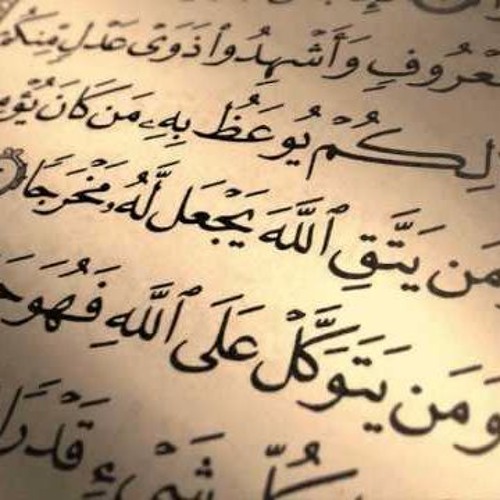 بِمَعْرُوفٍ وَأَشْهِدُوا۟ ذَوَىْ عَدْلٍ مِّنكُمْ
ذَٰلِكُمْ يُوعَظُ بِهِۦ مَن كَانَ يُؤْمِ
وَمَن يَتَّقِ ٱللَّهَ يَجْعَل لَّهُۥ مَخْرَجًا
وَمَن يَتَوَكَّلْ عَلَى ٱللَّهِ فَهُوَ حَ
لِكُلِّ شَىْءٍ قَدْرًا